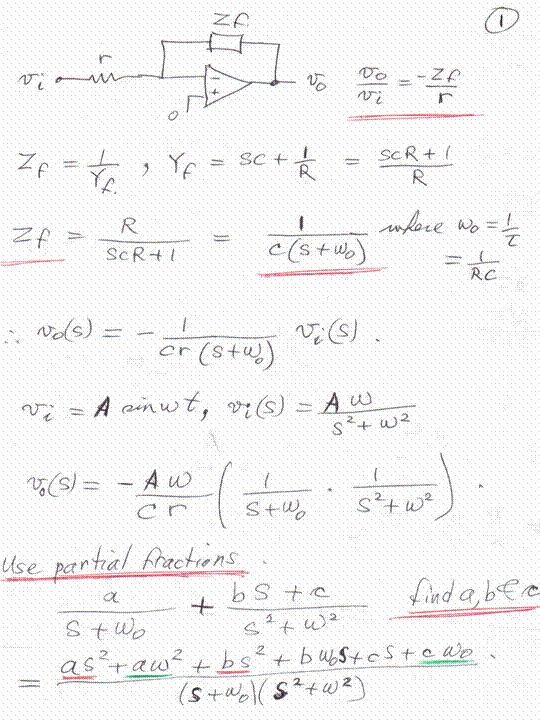 ①
Zf
r
vi
-
+
0
vo
vo/vi = -Zf/r
Zf = 1/Yf, Yf = sc + 1/R = scR+1/R
Zf = R/scR+1 = 1/c(s+ω0) where ω0 = 1/τ
= 1/RC
∴ vo(s) = - 1/cr(s+ω0) vi(s).
vi = A sinωt, vi(s) = Aω/s²+ω²
vo(s) = -Aω/cr (1/s+ω0 · 1/s²+ω²).
Use partial fractions.
a/s+ω0 + bs+c/s²+ω² find a,b & c
= as²+aω²+bs²+bω0s+cs+cω0/(s+ω0)(s²+ω²).